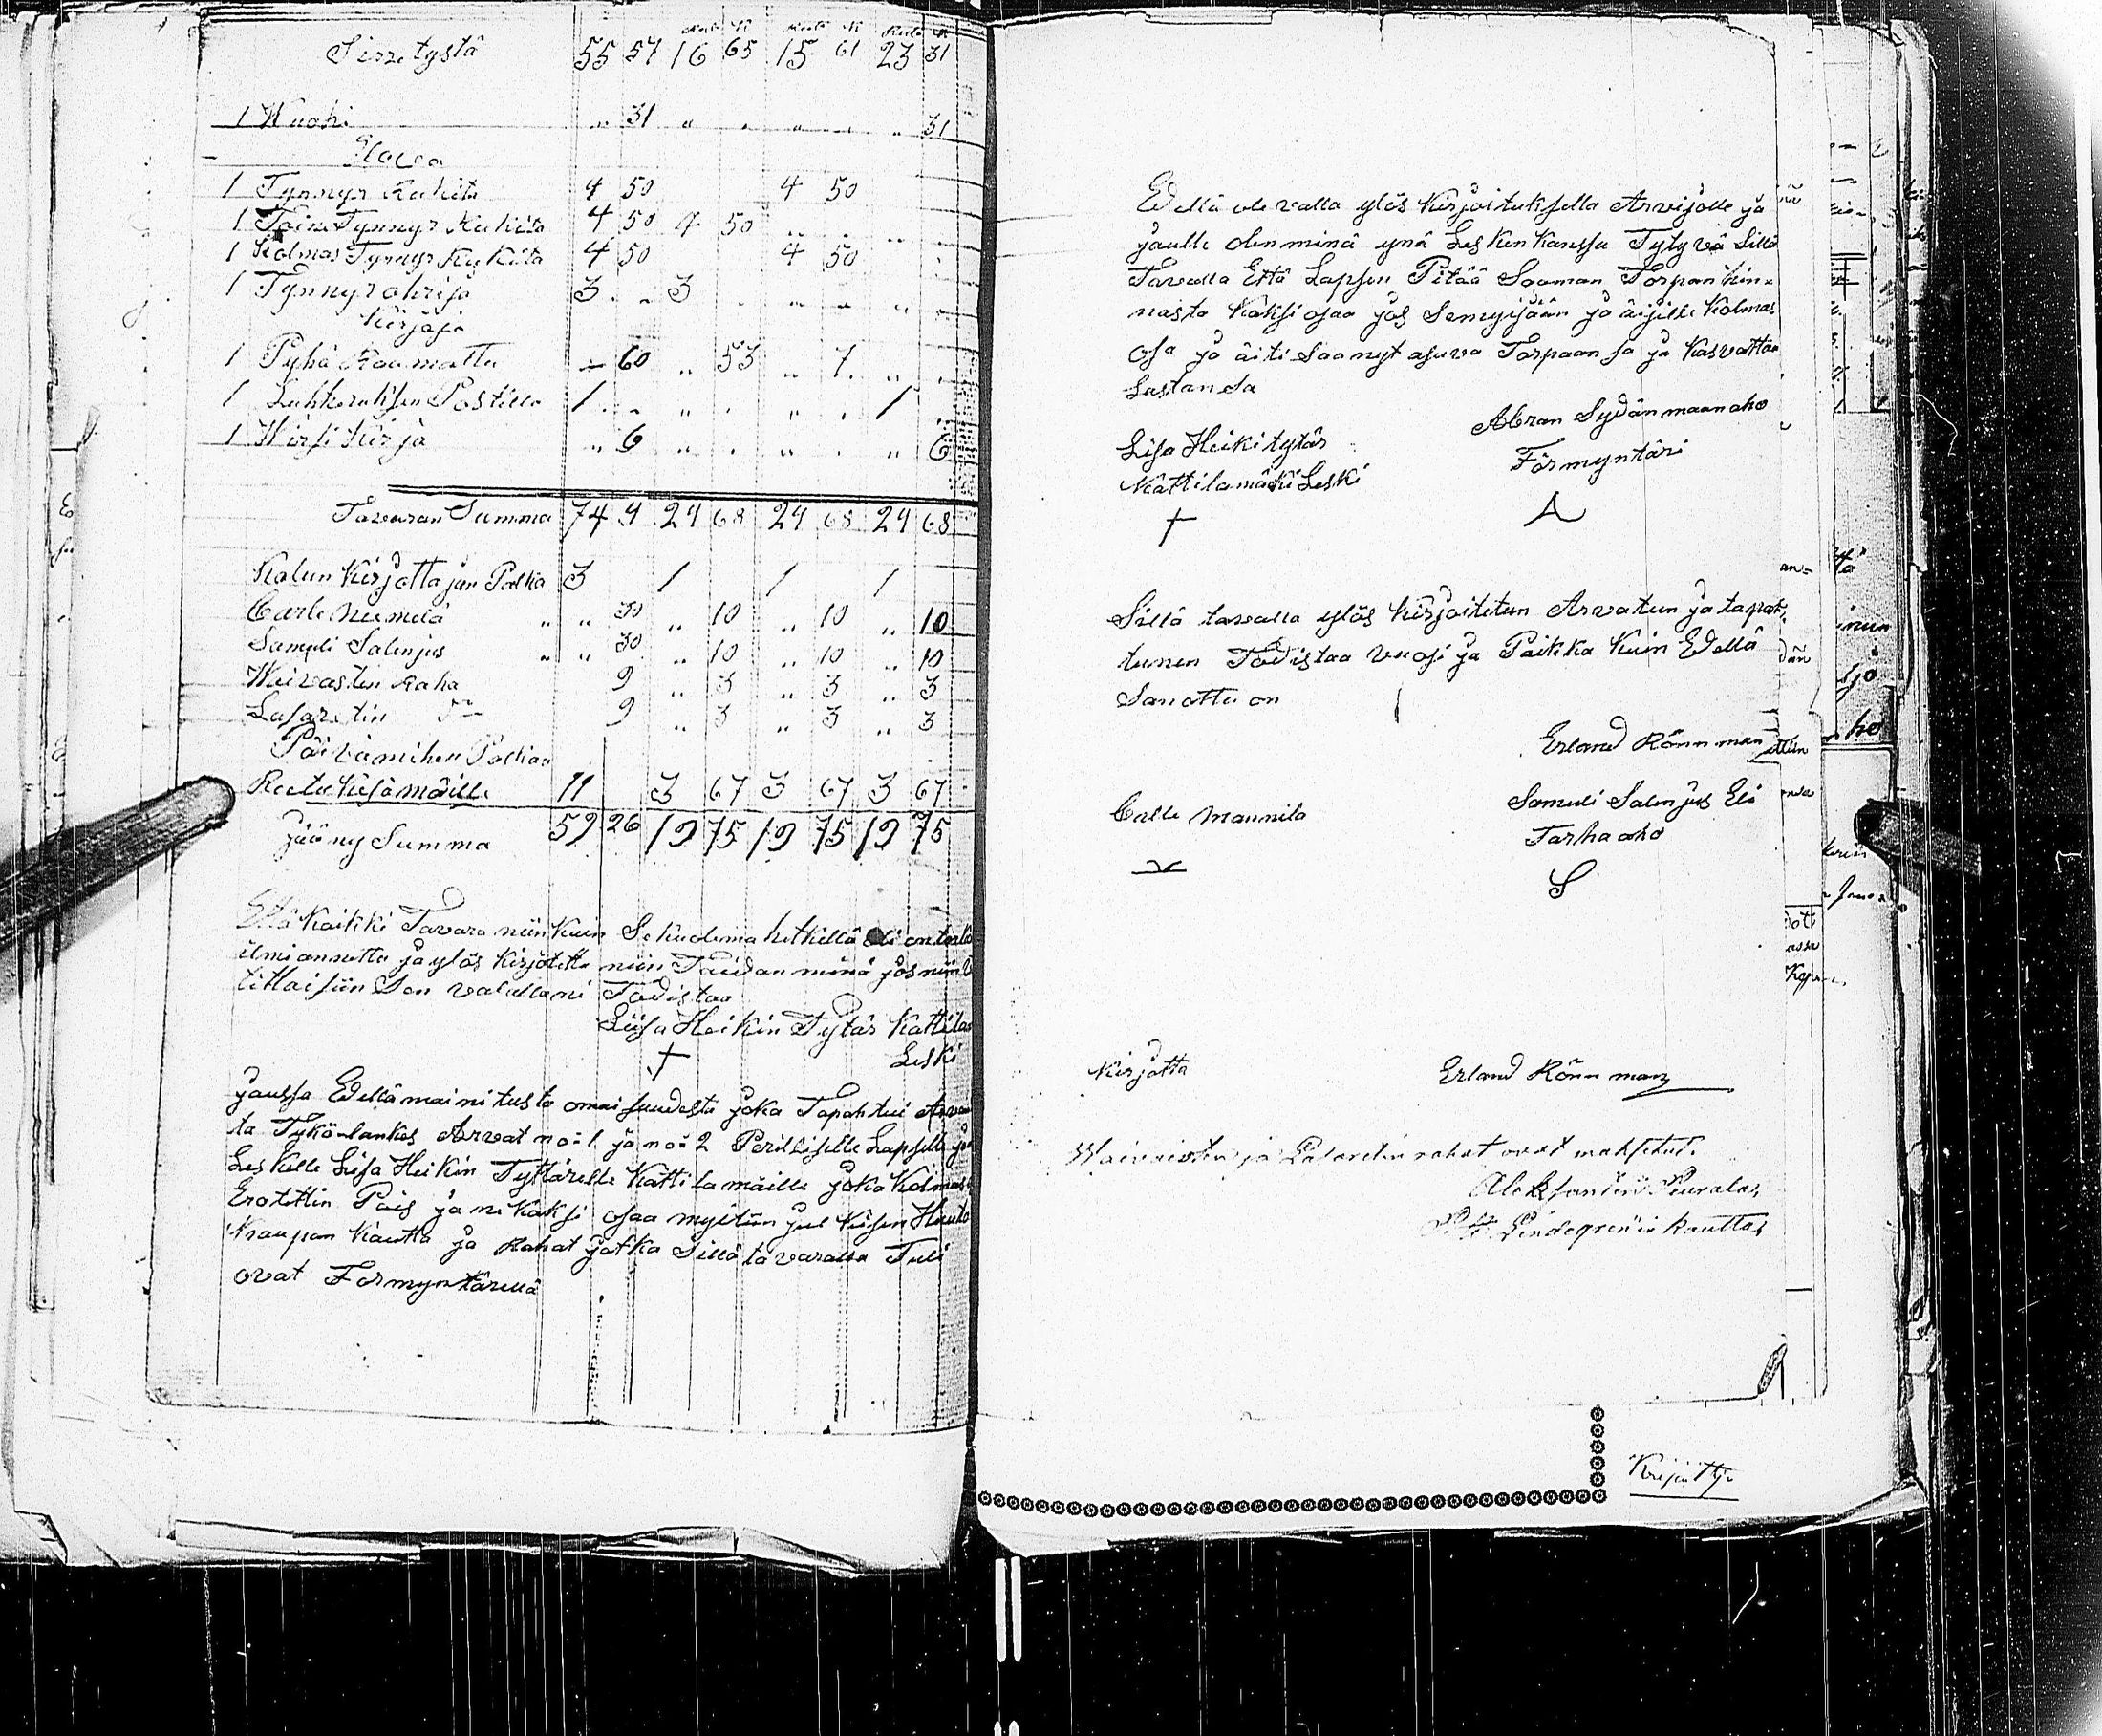 Rub K Rub K Rub K
Sirretystä 55 57 16 65 15 61 23 31
1 Wuohi " 31 " . " . " 31
Eloja
1 Tynnyr Rukita 4 50 4 50
1 Toinen Tynnyr Rukita 4 50 4 50 " . " .
1 Kolmas Tynnyr Rukita 4 50 4 50
1 Tynnyr ohrija 3 . " 3 . " " " .
Kirjoja
1 Pyhä Raamattu - 60 " 53 " 7 . " .
1 Lohkeruksen Postilla 1 . " " . " . 1 "
1 Wirsi Kirja " 6 " . " . " 6
Tavaran Summa 74 4 24 68 24 68 24 68
Kalun Kirjottajan Palka 3 1 1 1
Carle Niemelä " " 30 " 10 " 10 " 10
Samuli Salenjus " " 30 " 10 " 10 " 10
Waivasten Raha 9 " 3 " 3 " 3
Lasaretin 9 " 3 " 3 " 3
Päivämihen Palkaa
Reetu Kesämäille 11 3 67 3 67 3 67
Jääny Summa 59 26 19 75 19 75 19 75
Että Kaikki Tavara niinkuin Se kuolema hetkellä oli on
ilmi annettu ja ylös kirjotettu niin Taidan minä jos niin
tittaisiin Sen valallani Todistaa
Liisa Heikin Tytär Kattila
Leski
Jaussa Edellämainitusta omaisuudesta joka Tapahtui
ta Tykö-lankes Arvat no 1 ja no 2 Perilliselle Lapselle ja
Leskelle Liisa Heikin Tyttärelle Kattilamäille joka Kolmas
Erotettin Pois ja ne kaksi osaa myitiin Huuto
Kraupan Kautta ja Rahat jotka Sillä tavaralla Tuli
ovat Formyntärillä
Edellä olevalla ylös Kirjoituksella Arvijolle ja
jaulle olen minä ynä Lesken kanssa Tytyvä Sillä
Tavalla Että Lapsen Pitää Saaman Torpan hin-
nasta Kaksi osaa jos Se myijään ja äijille Kolmas
Osa ja äiti Saa nyt asuva Torpaansa ja Kasvattaa
Lastansa
Abran Sydänmaanaho
Lisa Heikitytär
Förmyntäri
Kattilamäki Leski
A
Sillä tavalla ylös kirjoitetun Arvatun ja tapah
tunen Todistaa vuosi ja Paikka Kuin Edellä
Sanottu on
Erland Rönnman
Calle Mannila
Samuli Salenjus Eli
Tarhaaho
S
Kirjotta
Erland Rönnman
Waivaisten ja Lasaretin rahat ovat maksetut.
Aleksanderi Peurala,
Lindegren'in kauttas